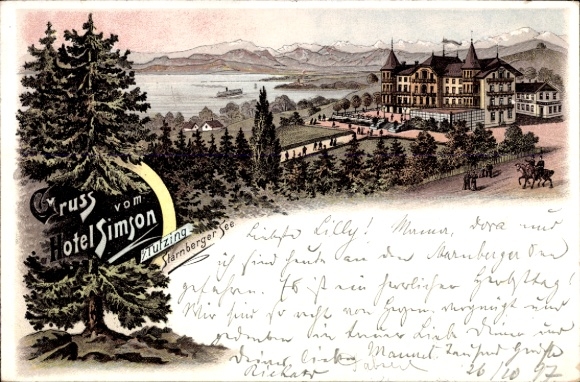 Gruss vom
Hotel Simson
Tutzing
Starnberger See
Liebste Lilly! Mama, Dora und
ich sind heute an den Starnberger See
gefahren. Es ist ein herrlicher Herbsttag!
Wir sind so recht von Herzen vergnügt und
gedenken in Liebe Deiner und
Deines lieben tausend Grüße
Richard
26/10 97